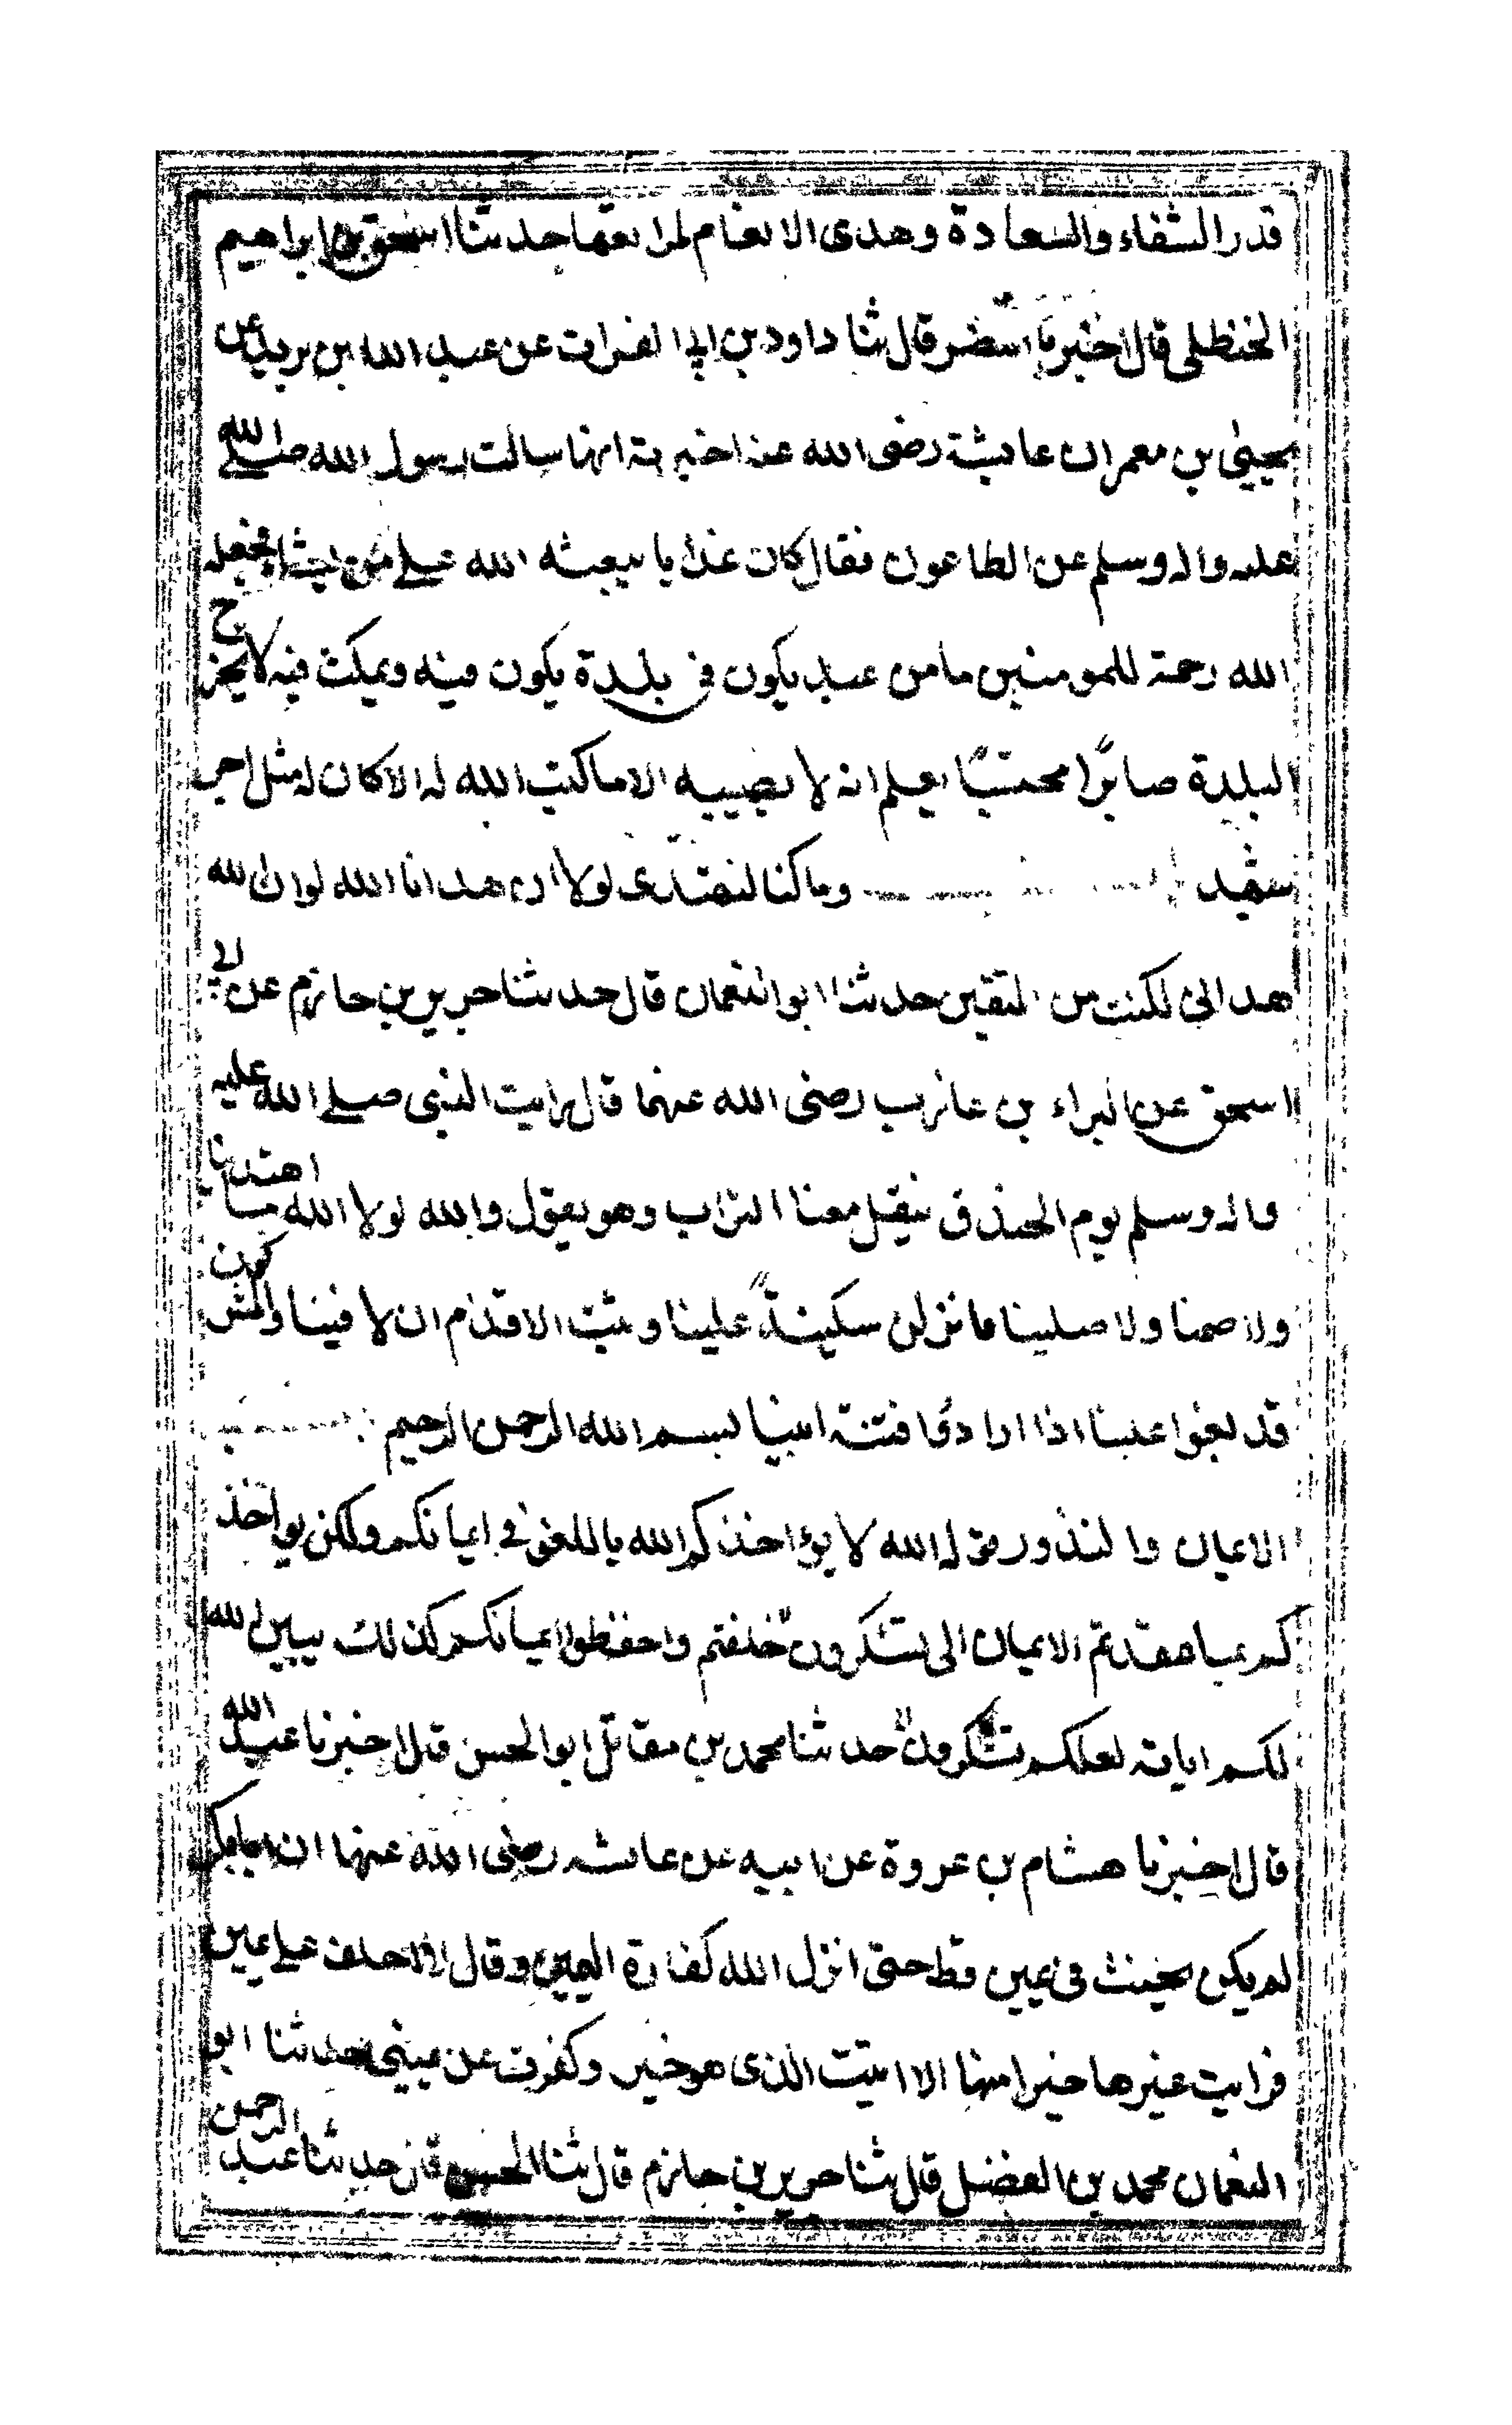 قدر الشفاء والسعادة وهدى الانعام لمراتعها حدثنا اسحق بن ابراهيم
الحنظلى قال اخبرنا النضر قال ثنا داود بن ابي الفرات عن عبد الله ابن بريدة عن
يحيىٰ بن معمر ان عايشة رضى الله عنه اخبرته انها سالت رسول الله صلى الله
عليه واله وسلم عن الطاعون فقال كان عذابا يبعثه الله على من يشاء فجعله
الله رحمة للمومنين ما من عبد يكون في بلدة يكون فيه ويمكث فيه لا يخرج
البلدة صابرًا محتسبًا يعلم انه لا يصيبه الا ما كتب الله له الا كان له مثل اجر
شهيد وما كنا لنهتدى لولا ان هدانا الله لو ان الله
هدانى لكنت من المتقين حدثنا ابو النعمان قال حدثنا جرير بن حازم عن ابي
اسحق عن البراء بن عازب رضى الله عنهما قال رايت النبى صلى الله عليه
واله وسلم يوم الخندق ينقل معنا التراب وهو يقول والله لولا الله ما اهتدينا
ولا صمنا ولا صلينا فانزلن سكينةً علينا وثبت الاقدام ان لا فينا والمشركون
قد بغوا علينا اذا ارادوا فتنة ابينا بسم الله الرحمن الرحيم
الايمان والنذور وقوله الله لا يؤاخذكم الله باللغو في ايمانكم ولكن يواخذ
كم بما عقدتم الايمان الى تشكرون خلفتم واحفظوا ايمانكم كذلك يبين الله
لكم اياته لعلكم تشكرون حدثنا محمد بن مقاتل ابو الحسن قال اخبرنا عبد الله
قال اخبرنا هشام بن عروة عن ابيه عن عايشه رضى الله عنها ان ابابكر
لم يكن يحنث فى يمين قط حتى انزل الله كفارة اليمين وقال لا احلف على يمين
فرايت غيرها خيرا منها الا اتيت الذى هو خير وكفرت عن يمينى حدثنا ابو
النعمان محمد بن الفضل قال ثنا جرير بن حازم قال ثنا الحسن قال حدثنا عبد الرحمن